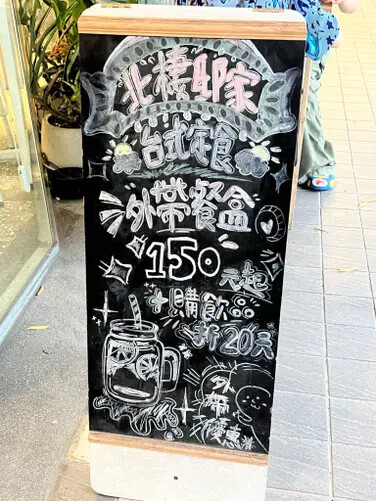 北棲邸家
台式定食
外帶餐盒
150
元起
+購飲品
折20元
外帶優惠